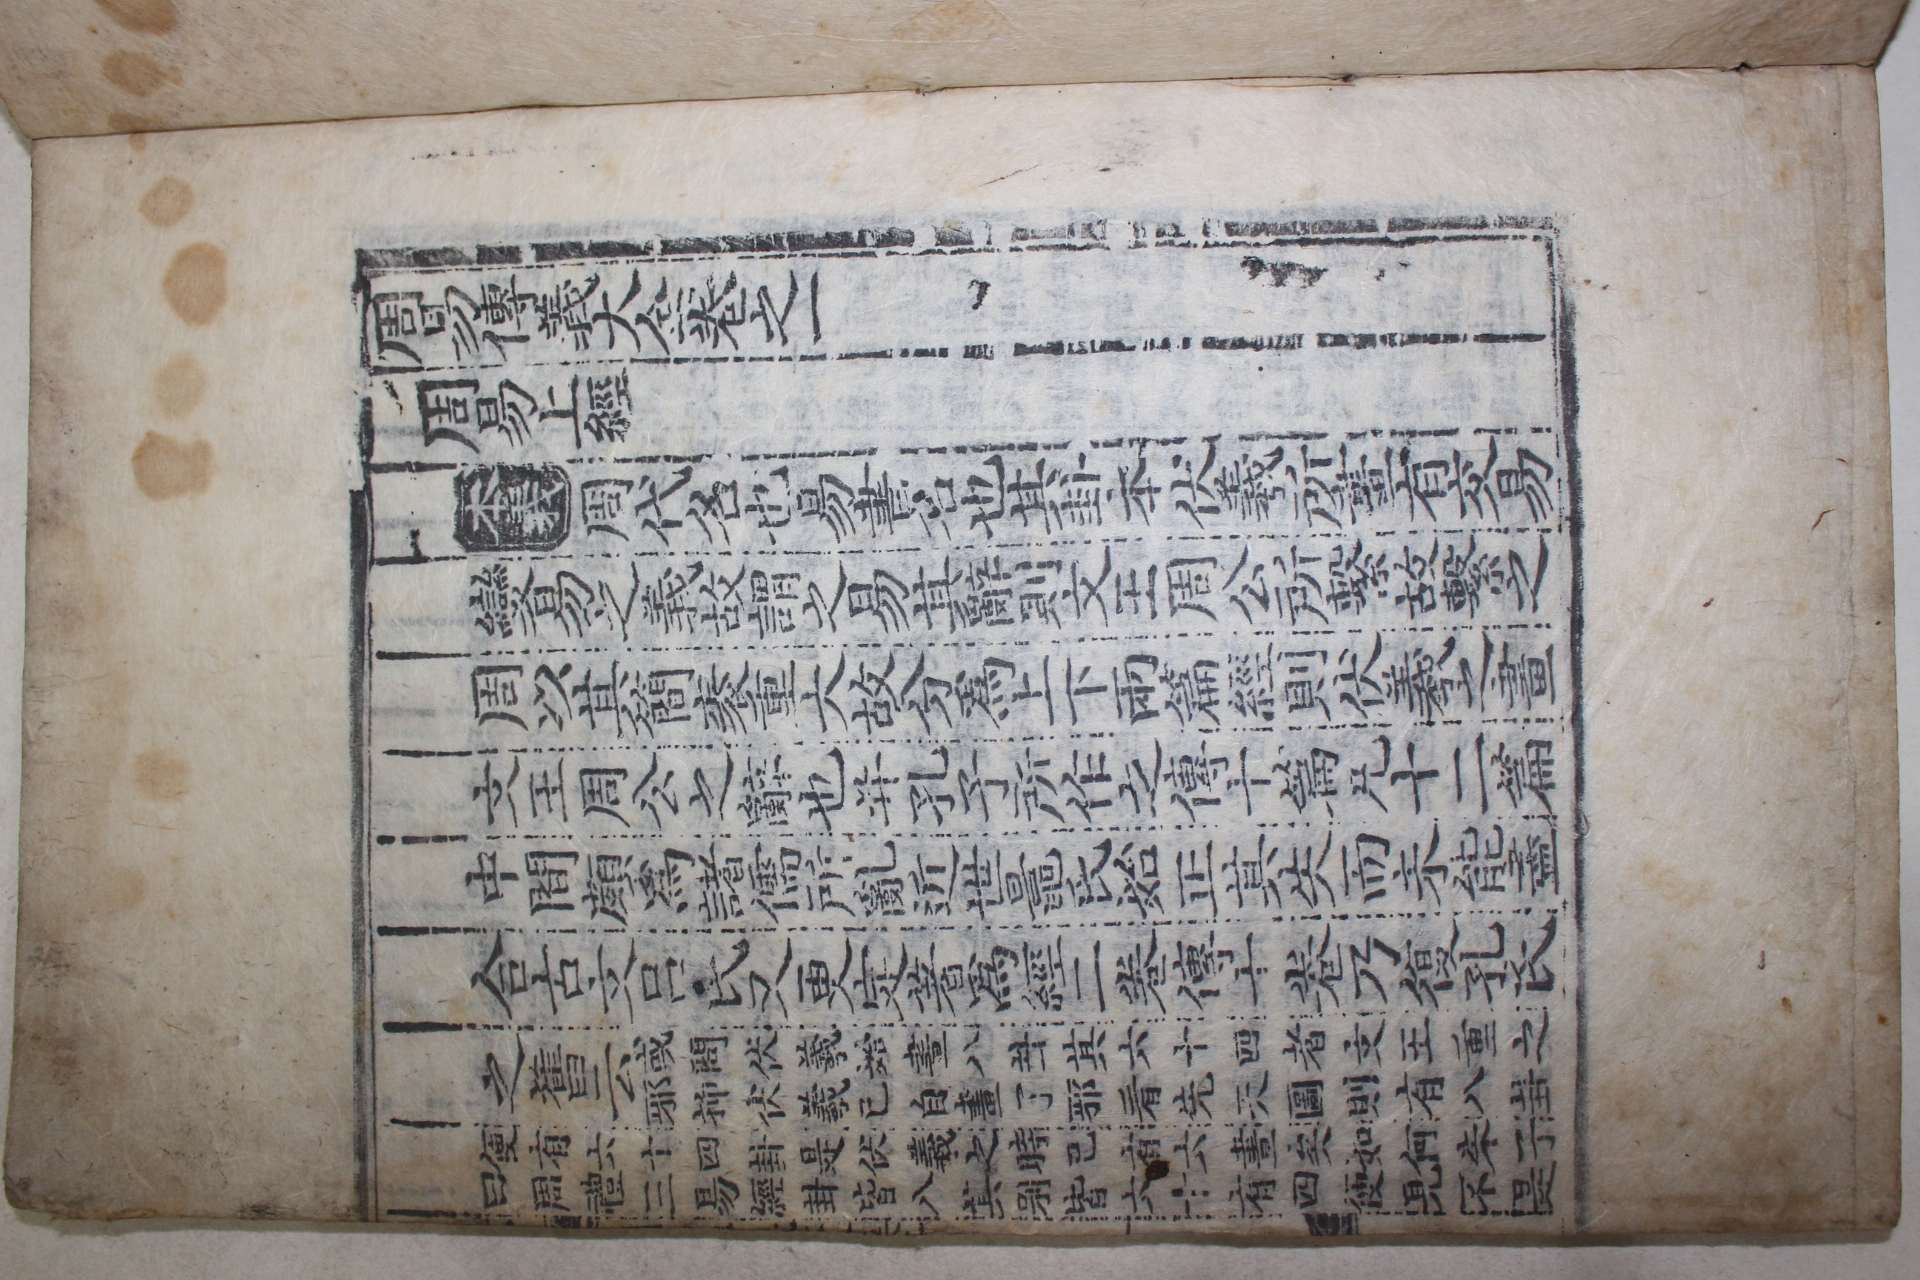 周易傳義大全卷之一
周易上經
本義
周代名也易書名也其卦本伏羲所畫有交易
變易之義故謂之易其辭則文王周公所繫故繫之
周以其簡袠重大故分爲上下兩篇經則伏羲之畫
文王周公之辭也幷孔子所作之傳十篇凡十二篇
中間頗爲諸儒所亂近世晁氏始正其失而未能盡
合古文呂氏又更定著爲經二卷傳十卷乃復孔氏
之舊云
或問伏羲始畫八卦其六十四者文王重之
邪抑伏羲已自畫了邪看先天圖則有八卦
便有六十四卦是伏羲之時已有六畫矣如何朱子
曰周禮三易經卦皆八其別皆六十有四便見不是